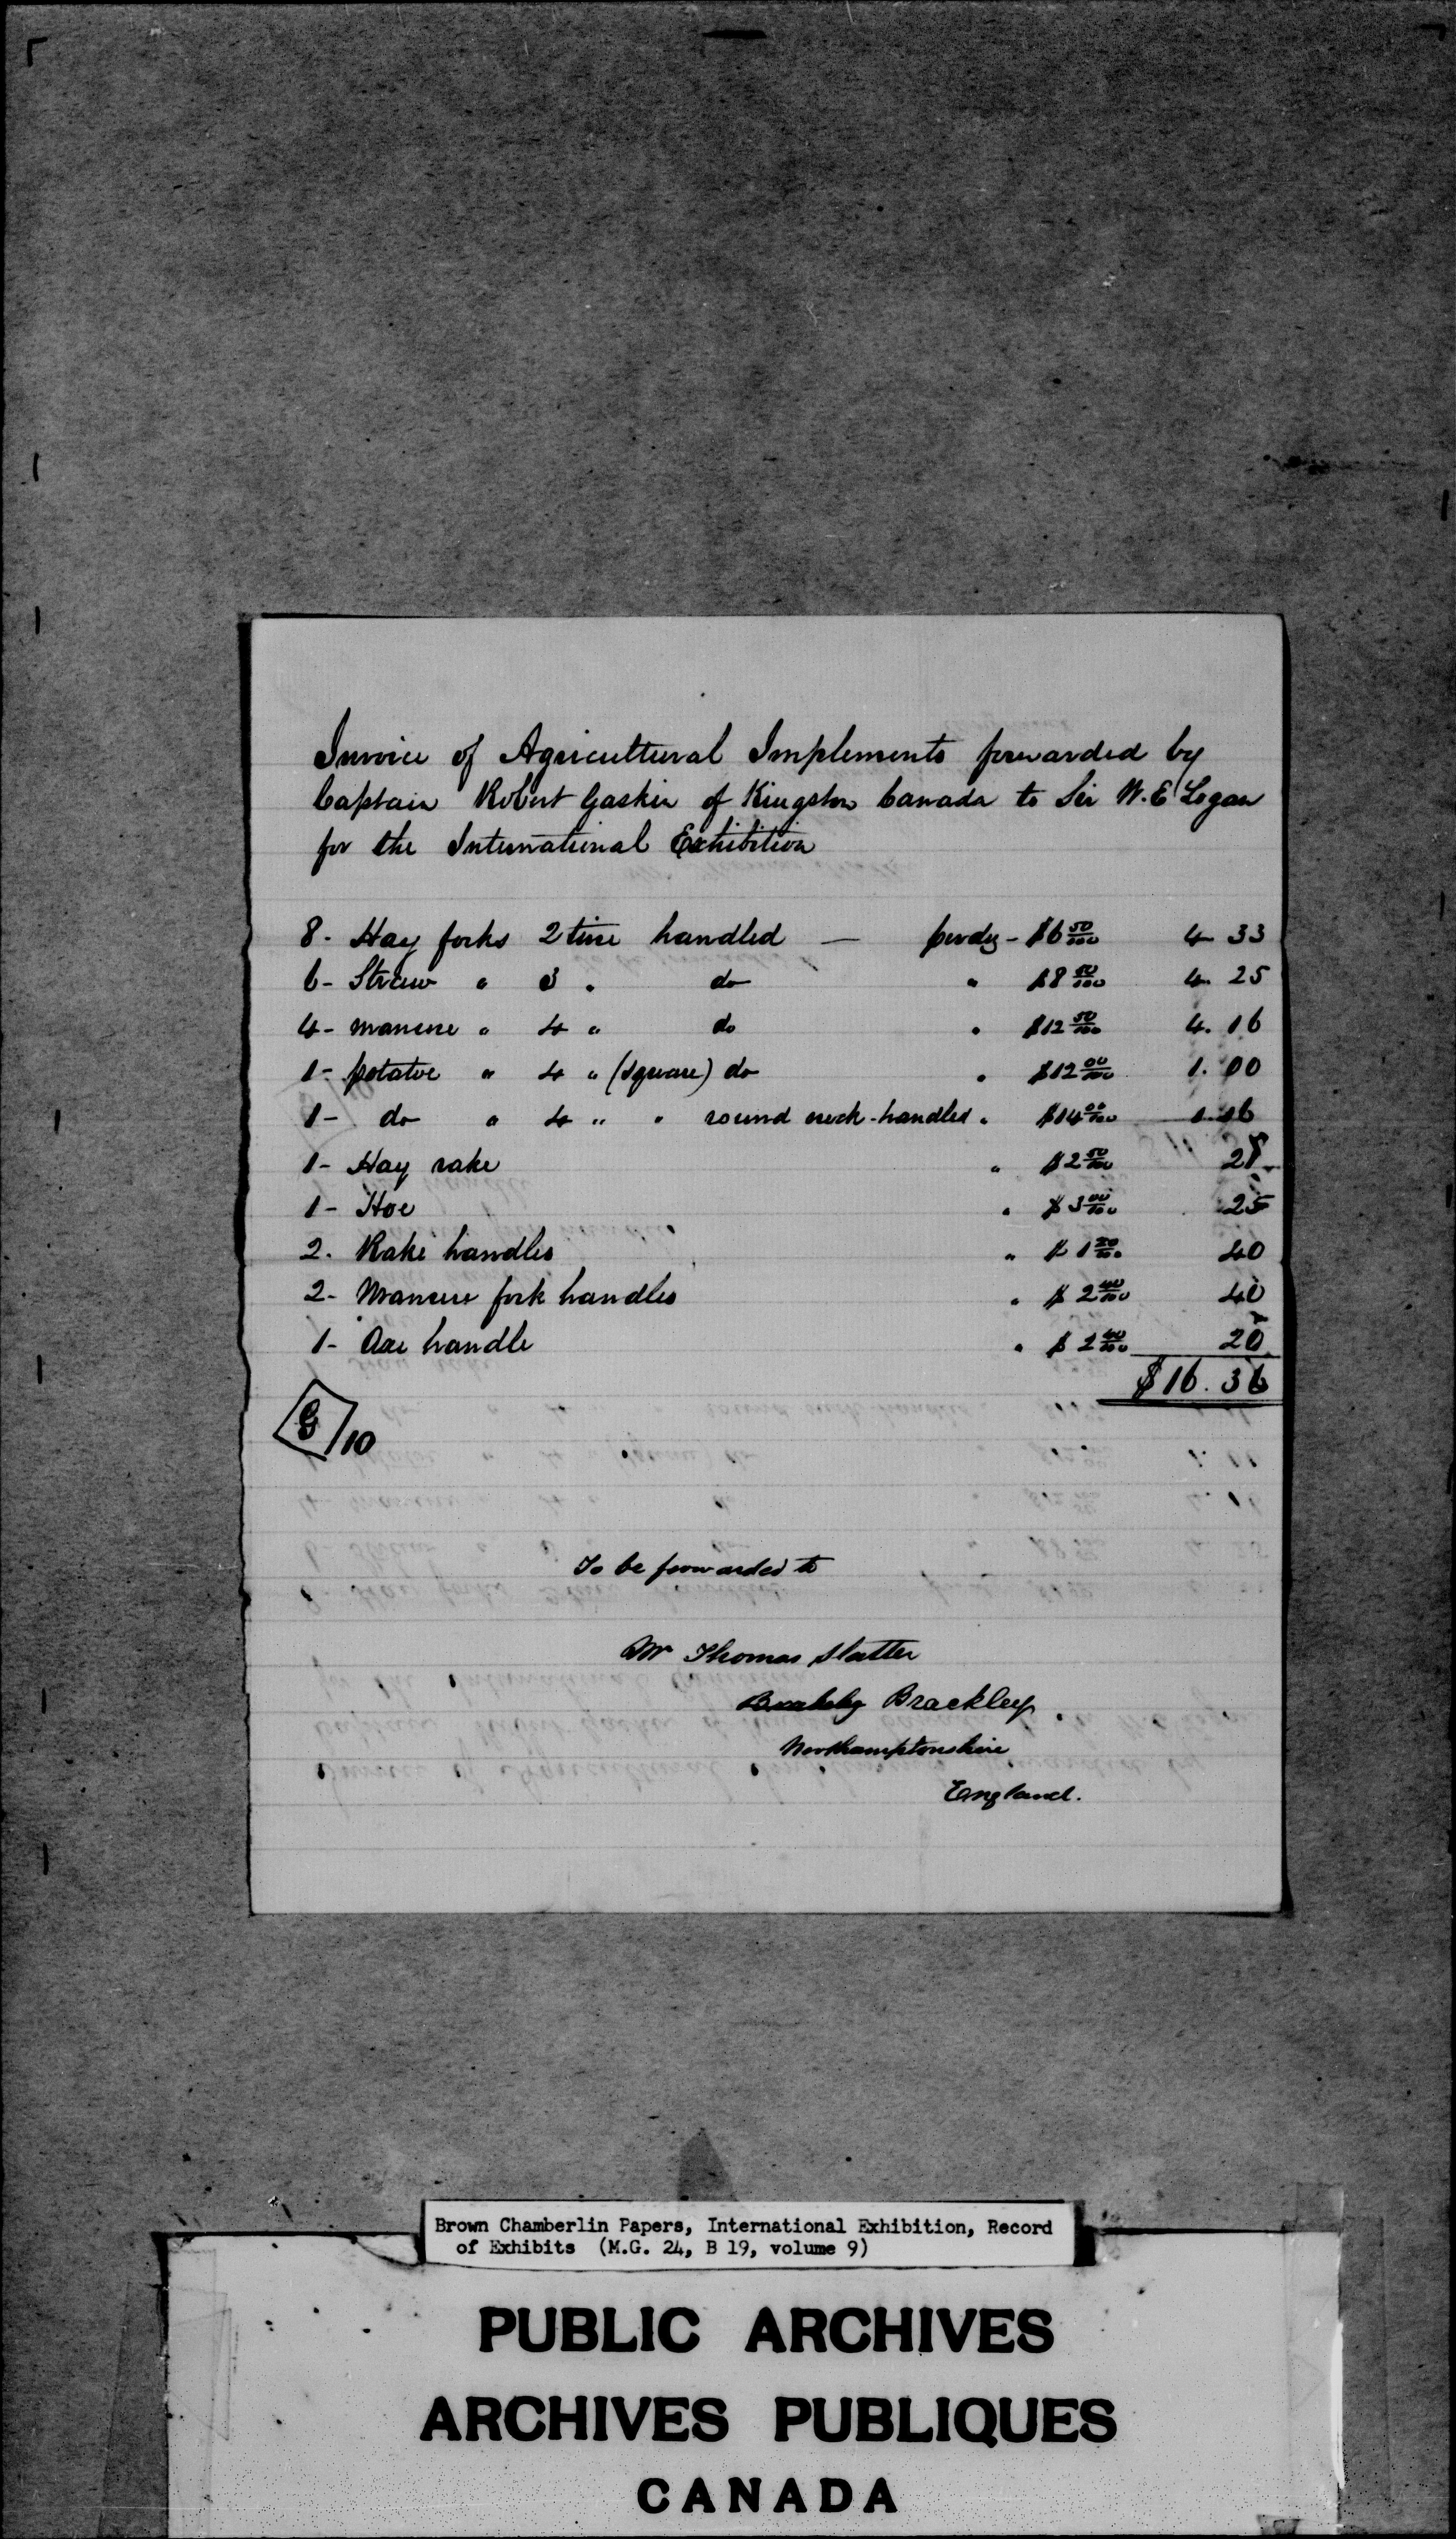 Invoice of Agricultural Implements forwarded by
Captain Robert Gaskin of Kingston Canada to Sir W. E Logan
for the International Exhibition
8 - Hay forks 2 tine handled — per dz - $6 50/100 4 33
6 - Straw " 3 " do " $8 50/100 4. 25
4 - manure " 4 " do " $12 50/100 4. 16
1 - potatoe " 4 " (square) do " $12 00/100 1. 00
1 - do " 4 " " round neck - handled " $14 00/100 1.16
1 - Hay rake " $2 50/100 21
1 - Hoe " $3 00/100 25
2. Rake handles " $1 20/100 40
2 - Manure fork handles " $2 40/100 40
1 - Axe handle " $2 40/100 20
$16. 36
G/10
To be forwarded to
Mr Thomas Slatter
Brackley
Northamptonshire
England.
Brown Chamberlin Papers, International Exhibition, Record
of Exhibits (M.G. 24, B 19, volume 9)
PUBLIC ARCHIVES
ARCHIVES PUBLIQUES
CANADA